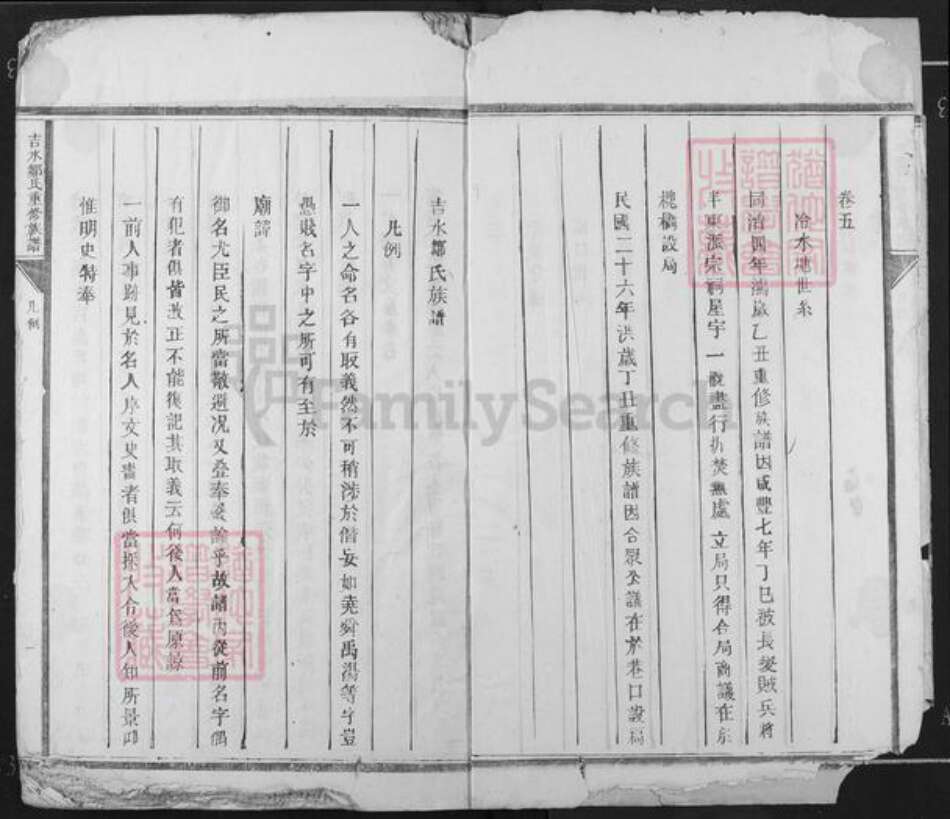 卷五
冷水地世系
同治四年歲乙丑重修族譜因咸豐七年丁巳被長髮賊兵將
半東派宗祠星宇一概盡行拆焚無處立局只得合局商議在東
橋設局
民國二十六年洪歲丁丑重修族譜因合眾公議在於巷口設局
吉水鄒氏族譜
凡例
一人之命名各有取義然不可稍涉於僭妄如堯舜禹湯等字豈
愚賤名字中之所可有至於
廟諱
御名尤臣民之所當敬避况又叠奉 諭乎故譜內從前名字偶
有犯者俱皆改正不能復記其取義云何後人當 原諒
一前人事跡見於名人序文史書者俱當採入令後人知所景仰
惟明史特奉
吉水鄒氏重修族譜
凡例
FamilySearch